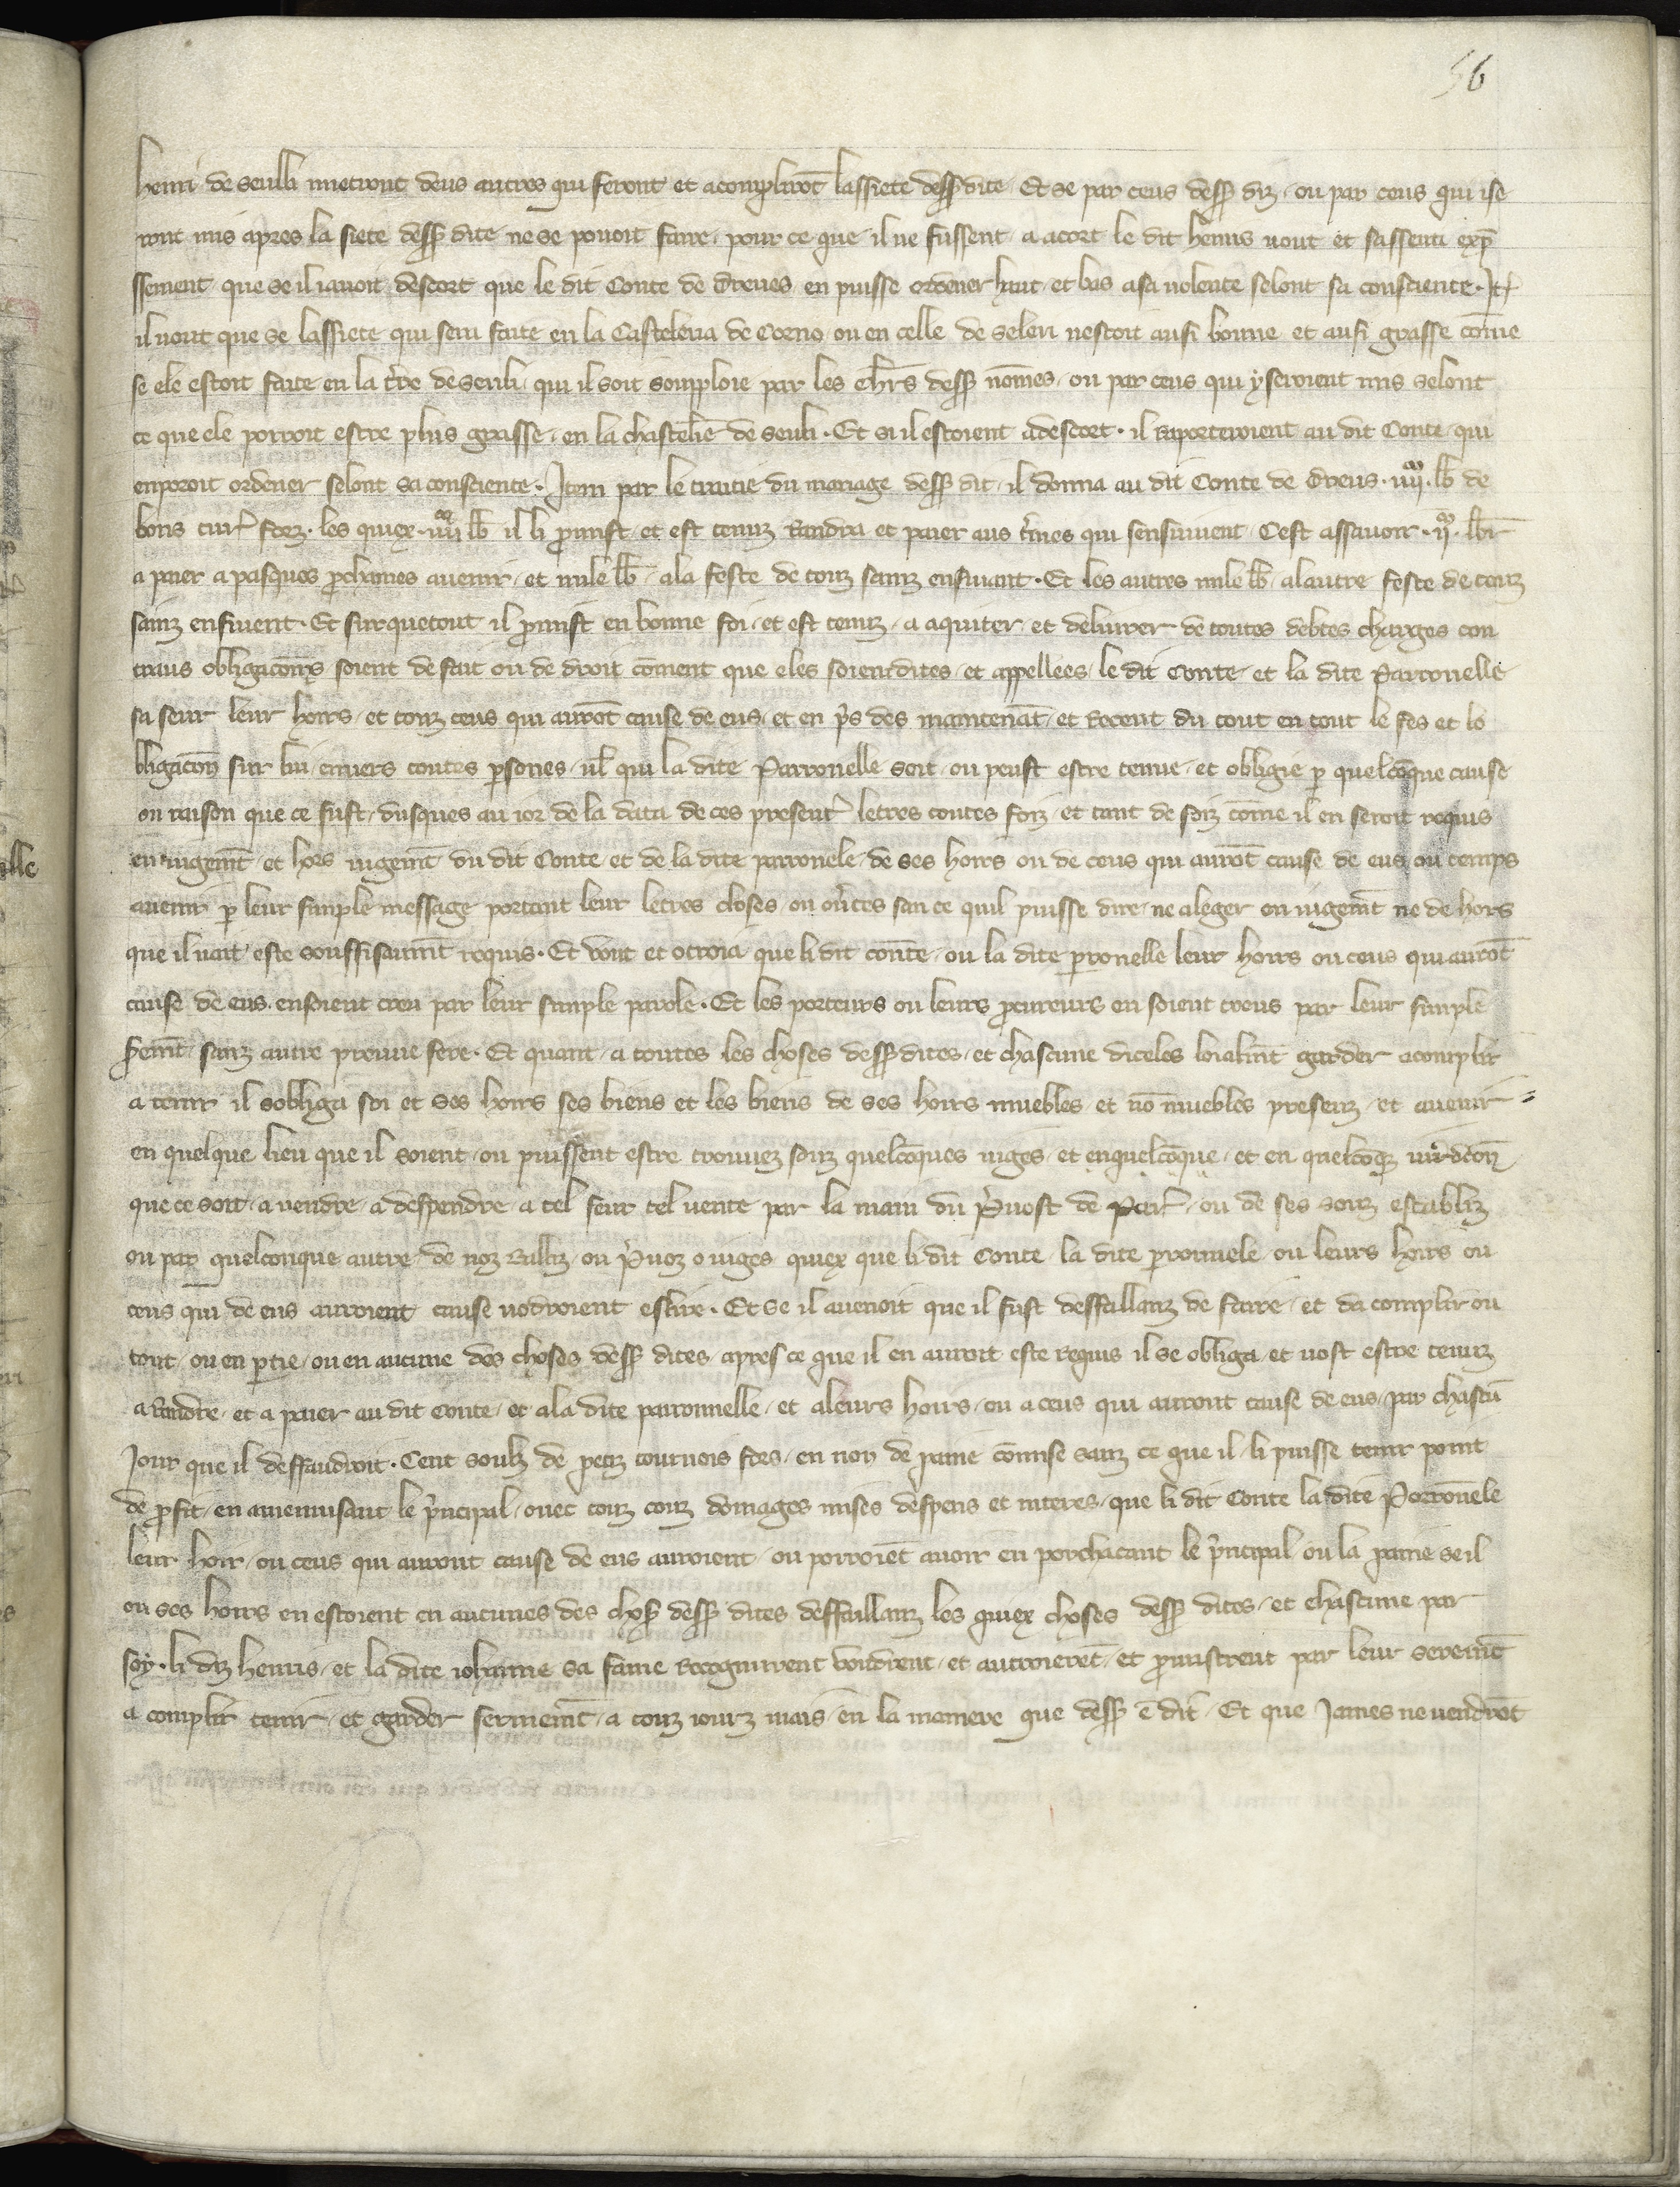 56
henri de seulli metront deus autres qui feront et acompliro̅t lassiete dess̅ dite Et se par ceus dess̅ diz ou par ceus qui ise
ront mis apres la siete dess̅ dite ne se pouoit faire pour ce que il ne fussent a acort le dit henris uout et sassenti exp̅
ssement que se il iauoit descort que le dit Conte de dreues en puisse ordener haut et bas a sa uolente selont sa consciente. It̅
il uout que se lassiete qui sera faite en la Casteleria de Corno ou en celle de seleri nestoit ausi bonne et ausi grasse co̅me
se ele estoit faite en la t̅re de seuli qui il soit somploie par les dess̅ no̅mes ou par ceus qui y seroient mis selont
ce que ele porroit estre plus grasse en la chastelie̅ de seuli. Et si il estoient a descort. il raporteroient au dit Conte qui
enporoit ordener selont sa consciente. Item par le traitie du mariage dess̅ dit il donna au dit Conte de dreus. iiij.ͫ lb̅ de
bons tur̅ forz. les quiex. iiij.ͫ lb̅ il li p̅mist et est tenuz Randra et paier aus t̅mes qui sensuiuent Cest assauoir. ij.ͫ lb̅r
a paier a pasques p̅chaines auenir et mile lb̅ a la feste de touz sainz ensuiant. Et les autres mile lb̅ a lautre feste de touz
sainz ensiuent. Et surquetout il p̅mist en bonne foi et est tenuz a aquiter et deliurer de toutes debtes charges con
traus obligaco̅ns soient de fait ou de droit co̅ment que eles soient dites et appellees le dit Conte et la dite Parronelle
sa seur leur hoirs et touz ceus qui auro̅t cause de eus et en p̅s des maintena̅t et Recent du tout en tout le fes et lo
bligaco̅n sur lui enuers toutes p̅sones ul̅ qui la dite Parronelle soit ou peust estre tenue et obligie p̅ quelco̅que cause
ou raison que ce fust dusques au ior de la data de ces present̅ letres toutes foiz et tant de foiz co̅me il en seroit requis
en iugem̅t et hors iugem̅t du dit Conte et de la dite parronele de ses hoirs ou de ceus qui auro̅t cause de eus ou temps
auenir p̅ leur simple message portant leur letres closes ou ou̅tes san ce quil puisse dire ne aleger en iugem̅t ne de hors
que il nait este souffisaum̅t requis. Et vout et otroia que li dit conte ou la dite p̅ronelle leur hoirs ou ceus qui auro̅t
cause de eus. ensoient creu par leur simple parole. Et les porteurs ou leurs p̅cureurs en soient creus par leur simple
s̅em̅t sanz autre prouue fere. Et quant a toutes les choses dess̅ dites et chascune diceles loialm̅t garder acomplir
a tenir il sobliga soi et ses hoirs ses biens et les biens de ses hoirs muebles et no̅ muebles presenz et auenir
en quelque lieu que il soient ou puissent estre trouuez souz quelco̅ques iuges et en quelco̅que et en quelco̅q̅ iurdico̅n
que ce soit a vendre a despendre a tel feur tel uente par la main du P̅uost de Par̅ ou de ses souz establiz
ou par quelconque autre de noz Bailliz ou P̅uoz o iuges quiex que li dit Conte la dite p̅ronnele ou leurs hoirs ou
ceus qui de eus auroient cause uodroient eslire. Et se il auenoit que il fust deffallanz de faire et da complir ou
tout ou en p̅tie ou en aucune des choses dess̅ dites apres ce que il en auroit este Requis il se obliga et uost estre tenuz
a Randre et a paier au dit Conte et a la dite parronnelle et aleurs hoirs ou a ceus qui auront cause de eus par chascu̅
Jour que il deffaudroit. Cent soulz de p̅etiz tournois fors en non de paine co̅mise sanz ce que il li puisse tenir point
de p̅fit en amenuisant le p̅ncipal ouec touz couz domages mises despens et interes que li dit Conte la dite Perrone̅le
leur hoir ou ceus qui auront cause de eus auroient ou porroie̅t auoir en porchacant le p̅ncipal ou la paine se il
ou ses hoirs en estoient en aucunes des chos̅ dess̅ dites deffaillanz les quiex choses dess̅ dites et chascune par
soy. li diz henris et la dite iohanne sa fame Recognurent voudrent et autroiere̅t et p̅mistrent par leur serem̅t
a complir tenir et garder fermem̅t a touz iourz mais en la maniere que dess̅ e̅ dit Et que James ne uendro̅t